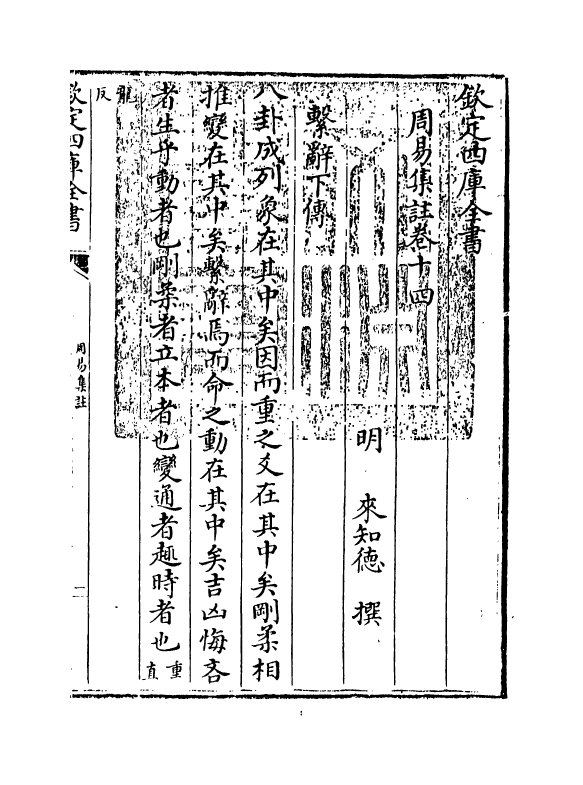 欽定四庫全書
周易集註卷十四
明 來知德 撰
繫辭下傳
八卦成列象在其中矣因而重之爻在其中矣剛柔相
推變在其中矣繫辭焉而命之動在其中矣吉凶悔吝
者生乎動者也剛柔者立本者也變通者趣時者也重直
龍反
欽定四庫全書
周易集註